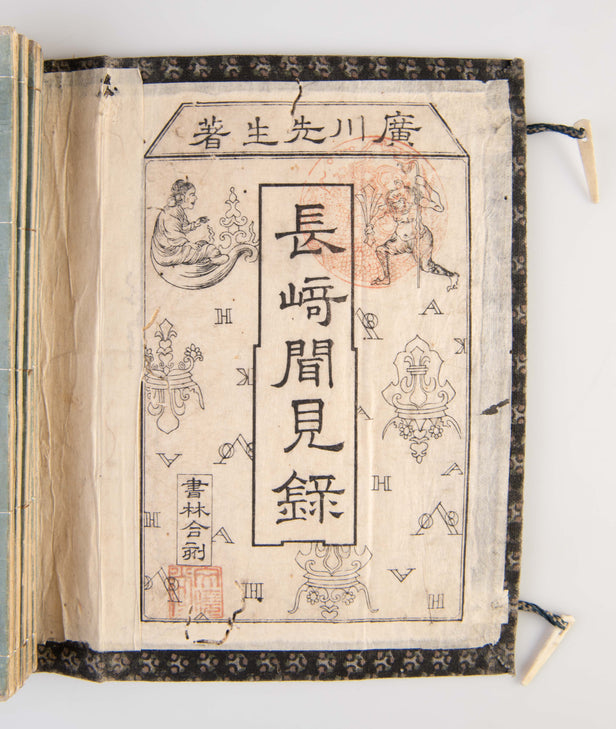 廣川先生著
長﨑聞見錄
書林合刻